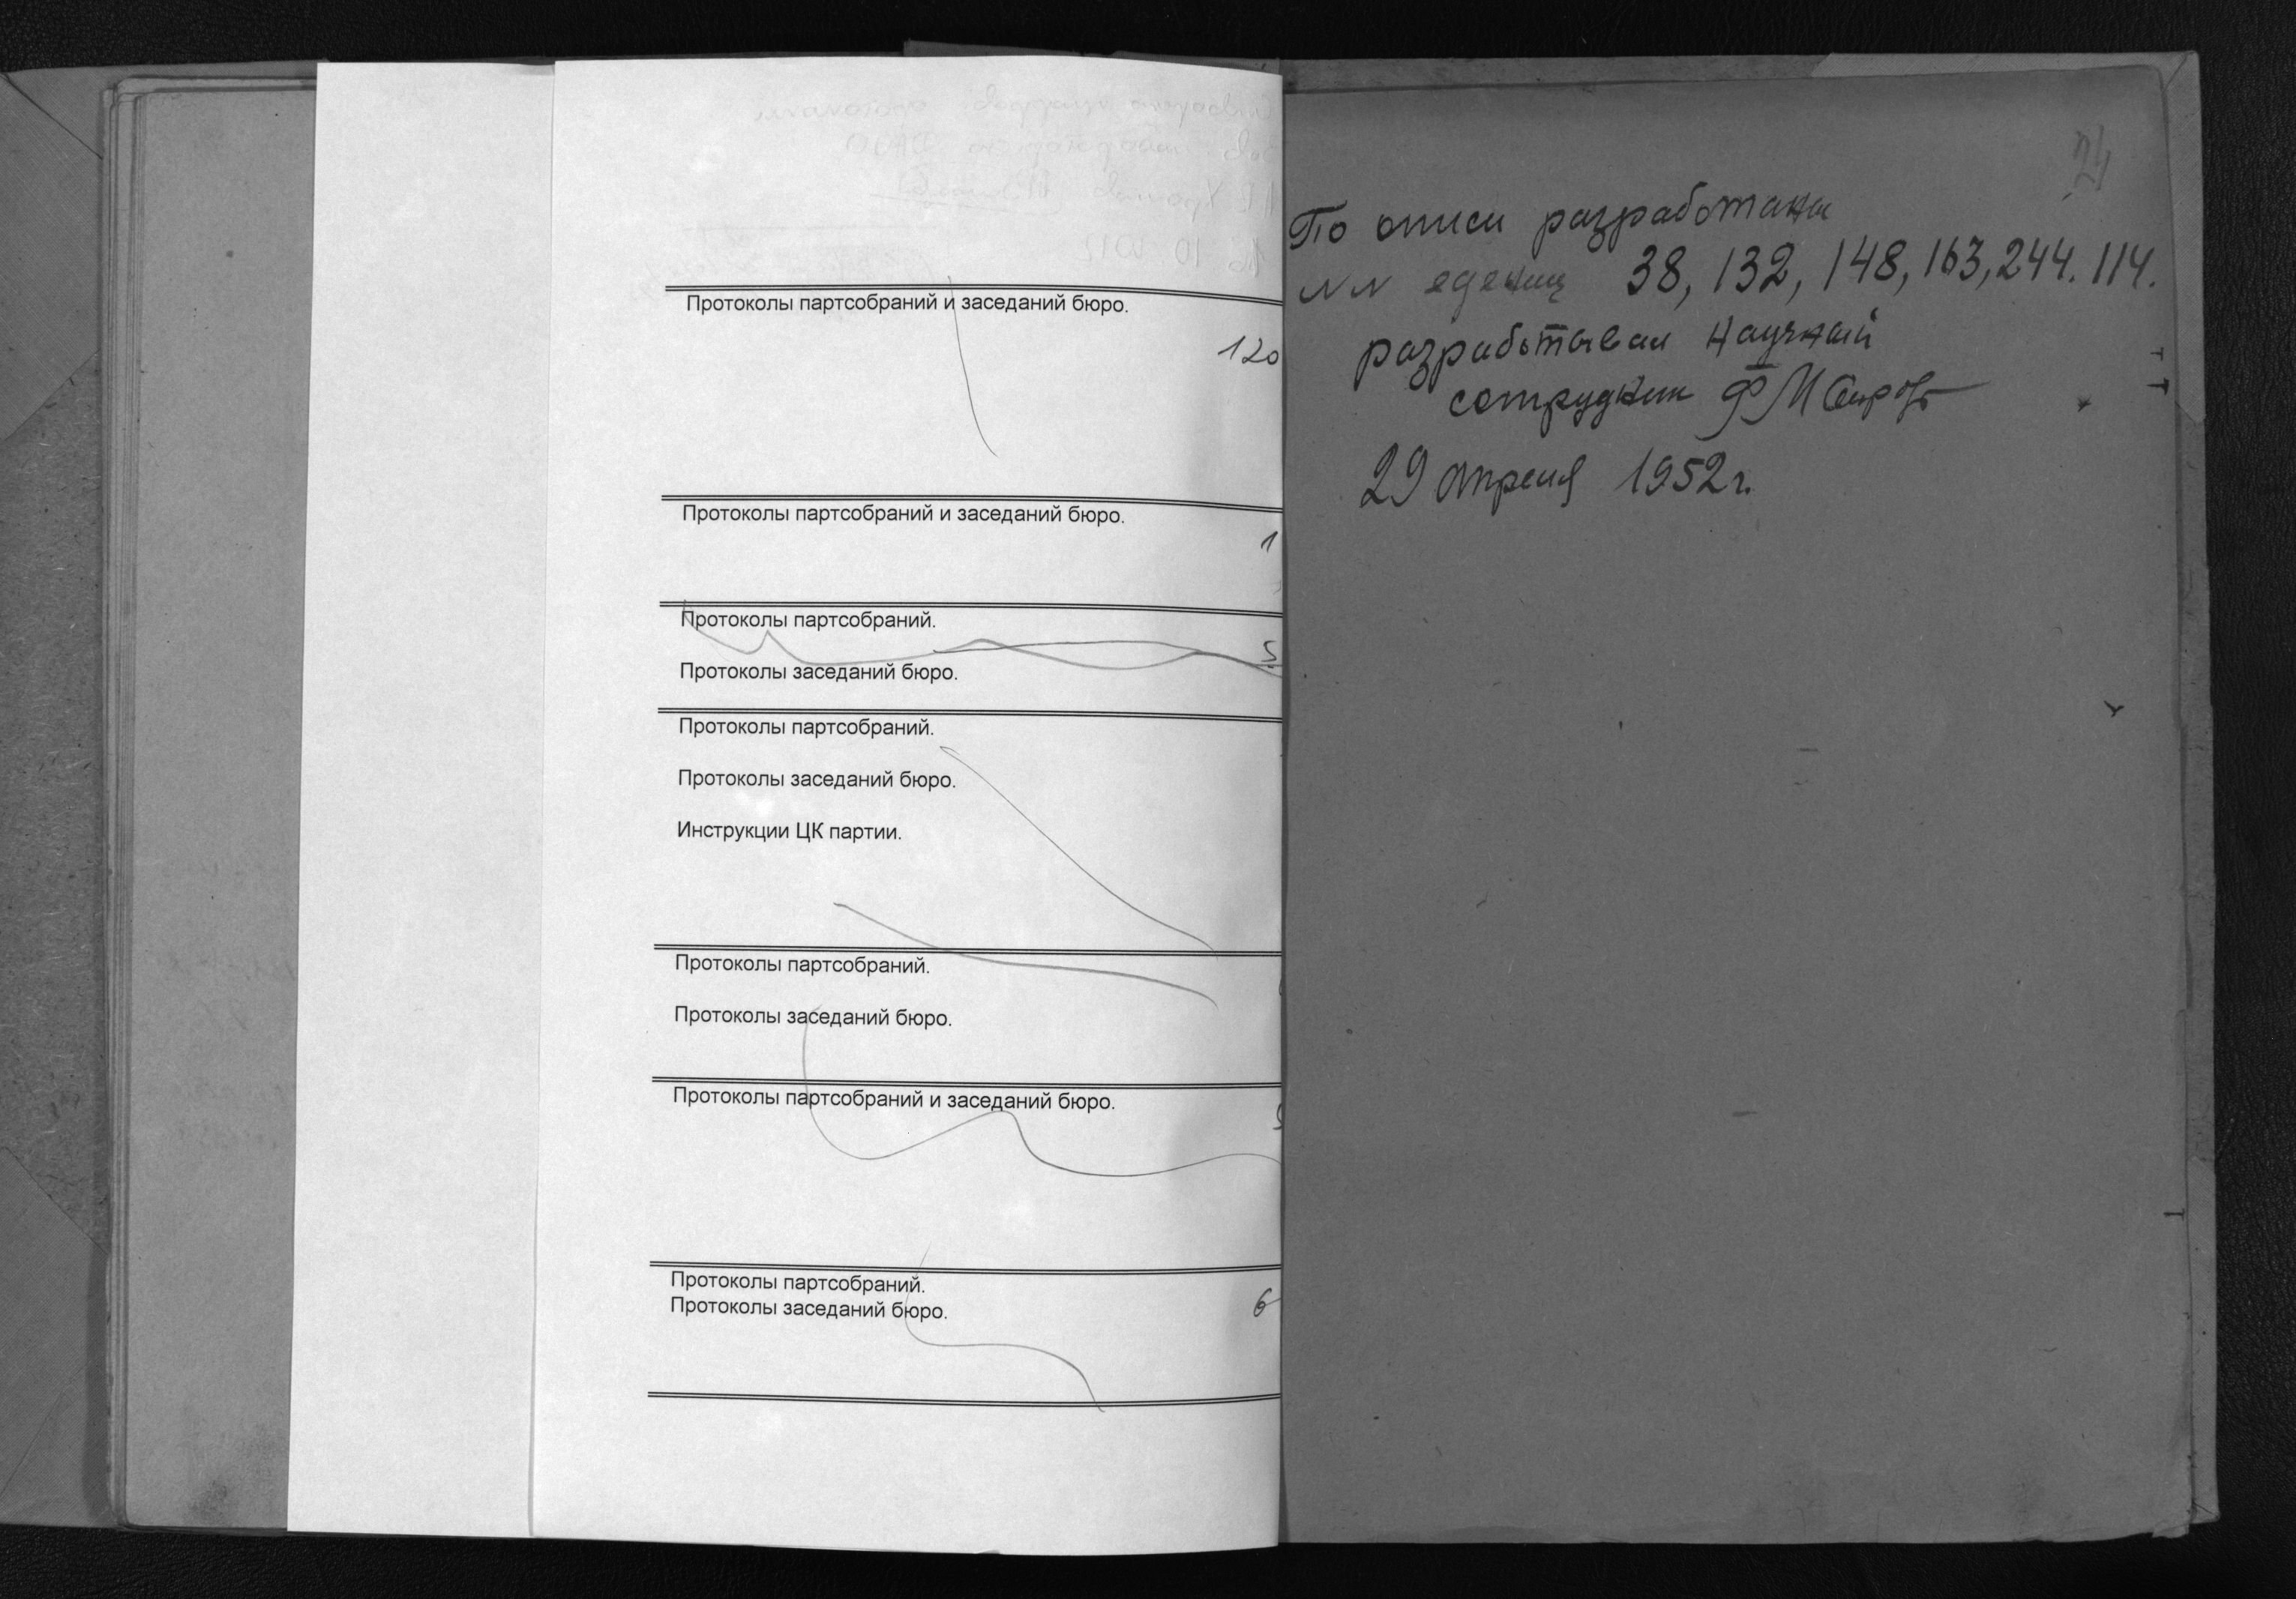 Протоколы партсобраний и заседаний бюро.
120
Протоколы партсобраний и заседаний бюро.
1
Протоколы партсобраний.
5
Протоколы заседаний бюро.
Протоколы партсобраний.
Протоколы заседаний бюро.
Инструкции ЦК партии.
Протоколы партсобраний.
Протоколы заседаний бюро.
Протоколы партсобраний и заседаний бюро.
Протоколы партсобраний.
Протоколы заседаний бюро.
6
По описи разработаны
NN едениц 38, 132, 148, 163, 244. 114.
разработывал научный
сотрудник ФМ
29 апреля 1952 г.